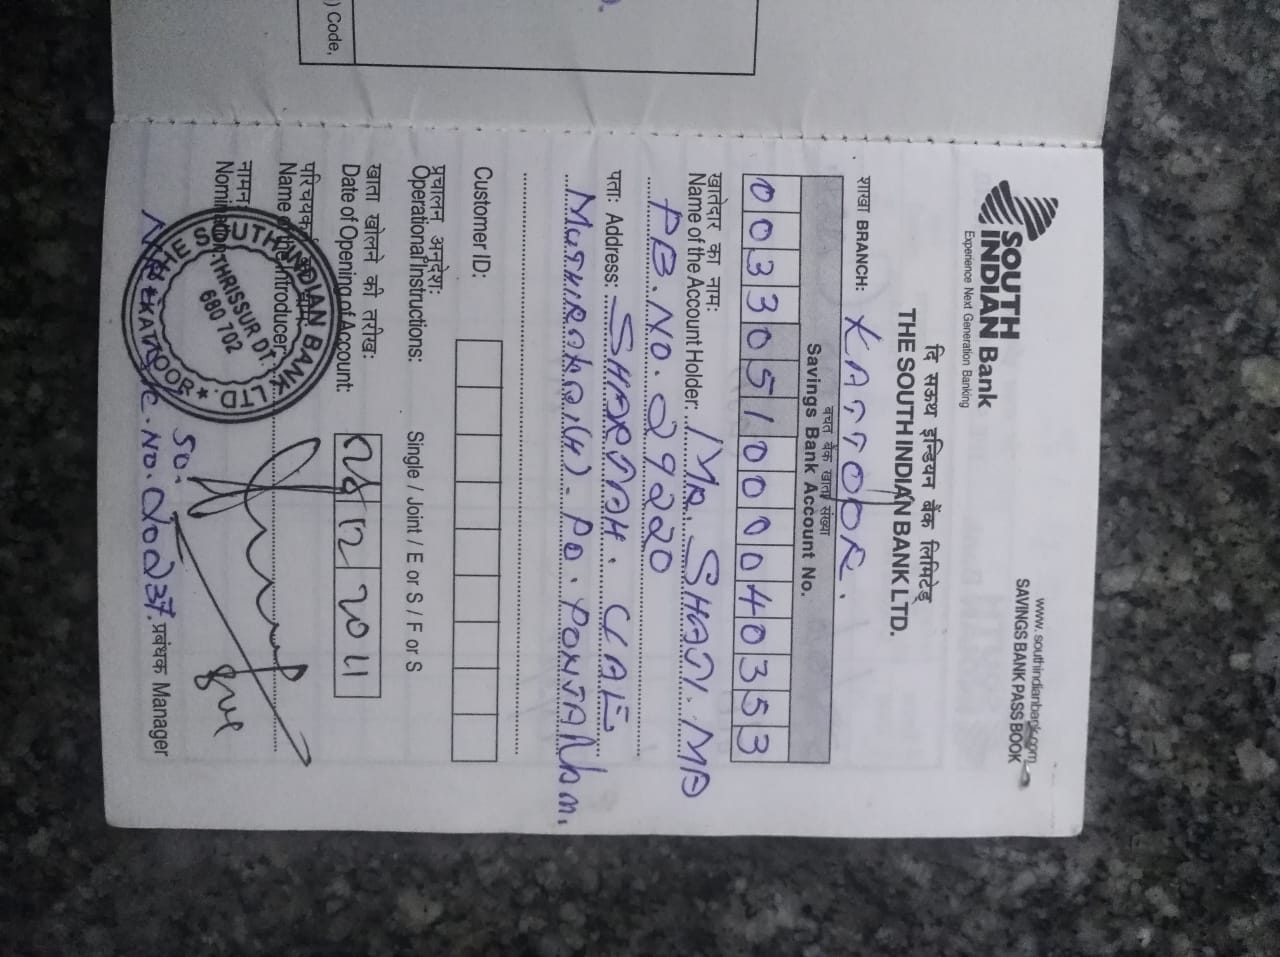 SOUTH
INDIAN Bank
Experience Next Generation Banking
www.southindianbank.com
SAVINGS BANK PASS BOOK
दि सऊथ इन्डियन बैंक लिमिटेड्
THE SOUTH INDIAN BANK LTD.
शाखा BRANCH: KATTOOR.
बचत बैंक खाता संख्या
Savings Bank Account No.
0033051000040353
खातेदार का नामः
Name of the Account Holder: MR. SHAJI. MA
PB. NO. 29220
पताः Address: SHARJAH. UAE
MUTHIRAKAI(H). PO. PONJANAM.
Customer ID:
प्रचालन अनुदेशः
Operational Instructions: Single / Joint / E or S / F or S
खाता खोलने की तारीखः
Date of Opening of Account: 28 12 2011
) Code,
परिचयकर्ता का नामः
Name of the Introducer:
नामनः
Nomination:
THE SOUTH INDIAN BANK LTD. ★ KATTOOR ★
THRISSUR DT.
680 702
SO.
NO. 20237. प्रबंधक Manager